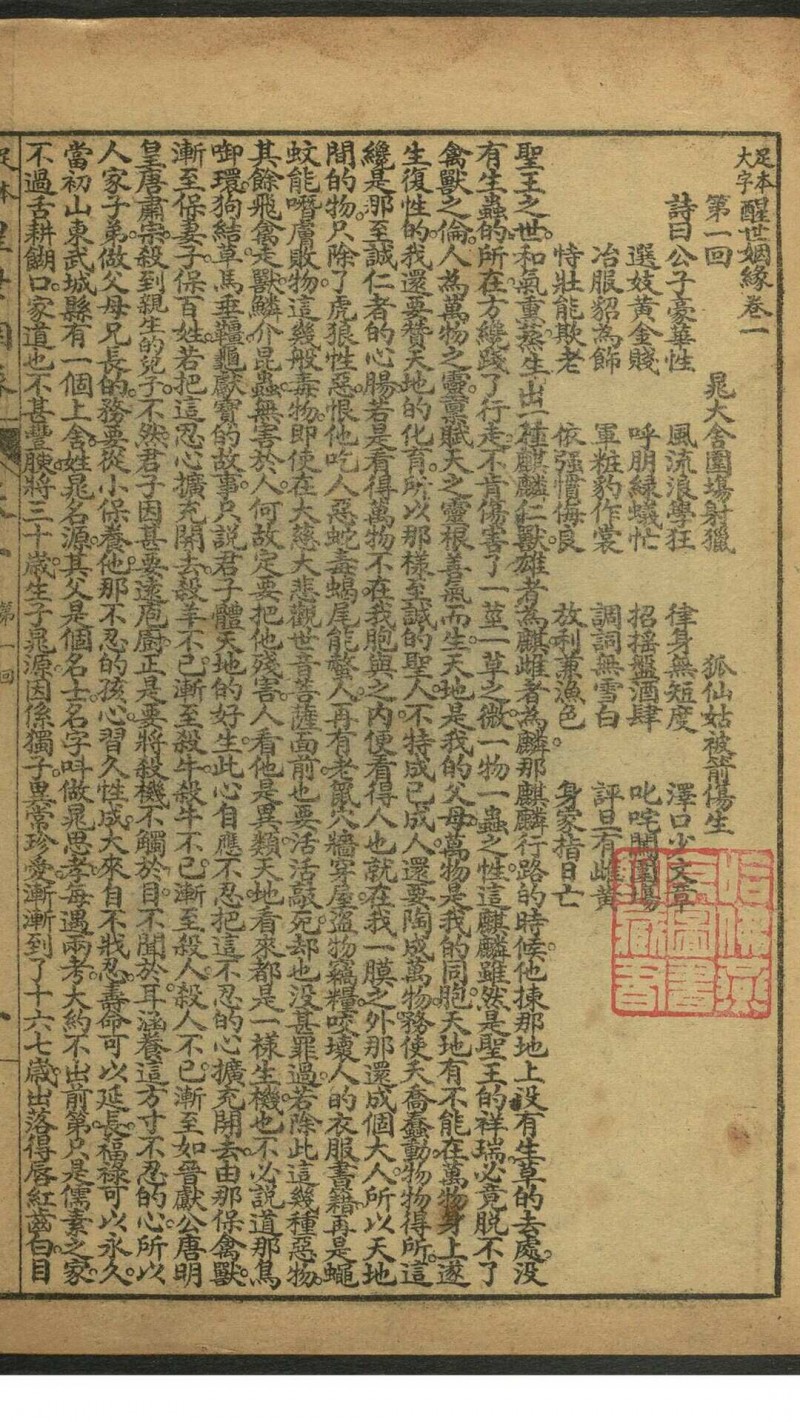 足本大字醒世姻緣卷一
第一回 晁大舍圍場射獵 狐仙姑被箭傷生
詩曰公子豪華性 風流浪學狂 律身無短度 澤口少文章
選妓黃金賤 呼朋綠蟻忙 招搖盤酒肆 叱咤鬧圍場
冶服貂為飾 軍粧豹作裳 調詞無雪白 評旦有雌黃
恃壯能欺老 依强慣侮良 放利兼漁色。 身家指日亡
聖王之世。和氣薰蒸。生出一種麒麟仁獸。雄者為麒。雌者為麟。那麒麟行路的時候。他揀那地上没有生草的去處。没
有生蟲的所在。方纔踐了行走。不肯傷害了一莖一草之微。一物一蟲之性。這麒麟雖然是聖王的祥瑞。必竟脱不了
禽獸之倫。人為萬物之靈。禀賦天之靈根善氣而生。天地是我的父母。萬物是我的同胞。天地有不能在萬物身上遂
生復性的。我還要贊天地的化育。所以那樣至誠的聖人。不特成已成人。還要陶成萬物。務使夭喬蠢動。物物得所。這
纔是那至誠仁者的心腸。若是看得萬物不在我胞與之内。便看得人也就在我一膜之外。那還成個大人。所以天地
間的物。只除了虎狼性惡。恨他吃人。惡蛇毒蝎尾能螫人。再有老鼠穴牆穿屋。盜物竊糧。咬壞人的衣服書籍。再是蠅
蚊能噆膚敗物。這幾般毒物。即使在大慈大悲觀世音菩薩面前。也要活活敲死。却也没甚罪過。若除此這幾種惡物。
其餘飛禽走獸鱗介昆蟲。無害於人。何故定要把他殘害。人看他是異類。天地看來都是一樣生機。也不必説道那鳥
啣環。狗結草。馬垂韁。龜獻寶的故事。只説君子體天地的好生。此心自應不忍。把這不忍的心擴充開去。由那保禽獸。
漸至保妻子。保百姓。若把這忍心擴充開去。殺羊不已。漸至殺牛。殺牛不已。漸至殺人。殺人不已。漸至如晉獻公唐明
皇唐肅宗。殺到親生的兒子。不然。君子因甚要遠庖廚。正是要將殺機不觸於目。不聞於耳。涵養這方寸不忍的心。所以
人家子弟。做父母兄長的。務要從小保養他那不忍的孩心。習久性成。大來自不戕忍。壽命可以延長。福祿可以永久。
當初山東武城縣有一個上舍。姓晁名源。其父是個名士。名字呌做晁思孝。每遇兩考。大約不出前第。只是儒素之家。
不過舌耕餬口。家道也不甚豐腴。將三十歲。生子晁源。因係獨子。異常珍愛。漸漸到了十六七歲。出落得唇紅齒白。目